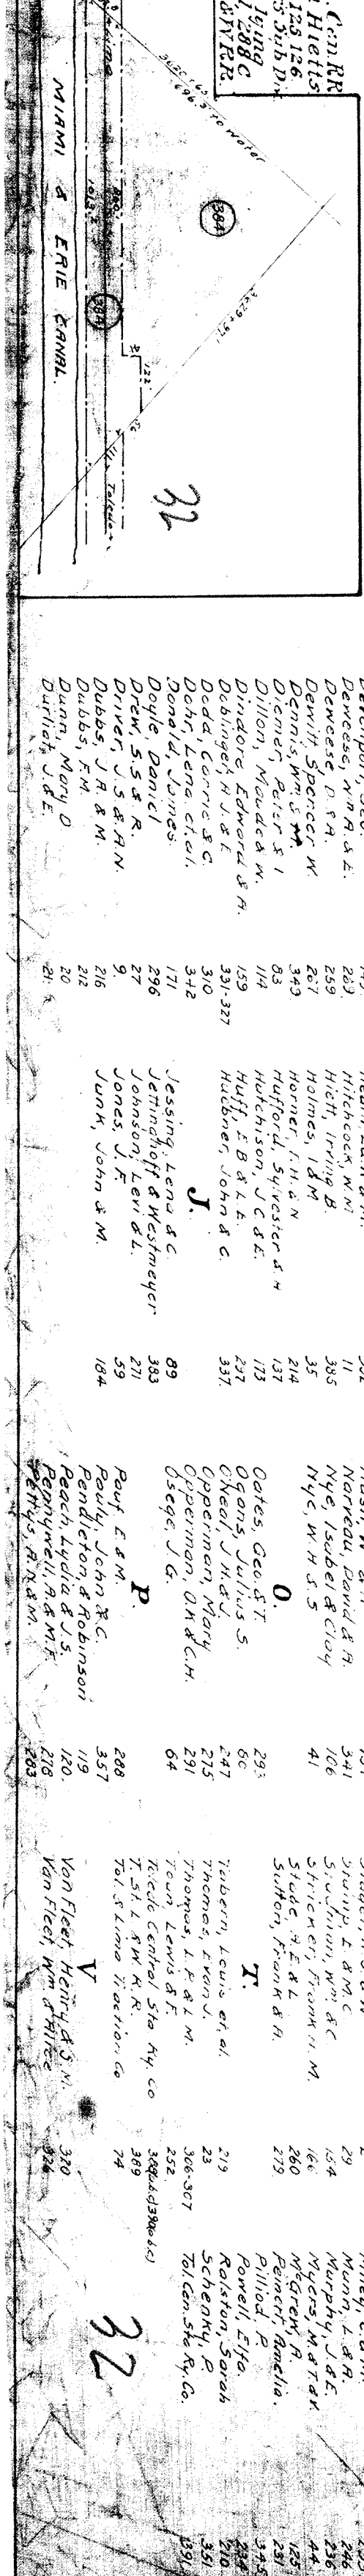 Cen RR
Hietts
125 126
s Sub Div
288 C
& W R.R.
3622 + 65
696.3 to Water
384
3629 + 97'
MIAMI & ERIE CANAL.
840'
1013.2
384
122'
56
Toledo
32
Deweese, Wm A. & E. 269
Deweese, D. & A. 259
Dewitt, Spencer W. 267
Dennis, Wm & M. 349
Diemer, Peter & I 83
Dillon, Maude & W. 114
Dindore, Edward & A. 159
Doblinger, A.J. & E. 331-327
Dodd, Carrie & C. 310
Dohr, Lena et.al. 342
Donald, James 171
Doyle, Daniel 296
Drew, S.S & R. 27
Driver, J.S & A.N. 9
Dubbs, J.A. & M. 216
Dubbs, F.M. 212
Dunn, Mary O 20
Durliat, J. & E. 21
Hitchcock, W.H. 11
Hiett, Irving B. 385
Holmes, I & M 35
Horner, I.H. & N 214
Hufford, Sylvester & H 137
Hutchison, J C & E. 173
Huff, E B & L E. 297
Huebner, John & C. 337
J.
Jessing, Lena & C. 89
Jettinghoff & Westmeyer 383
Johnson, Levi & L. 271
Jones, J. F. 59
Junk, John & M. 184
Narreau, David & A. 341
Nye, Isubel & Cloy 106
Nye, W.H & S 41
O.
Oates, Geo. & T. 293
Ogans, Julius S. 60
O'Neal, J.H & J. 247
Opperman, Mary 275
Opperman, O.K & C.H. 291
Osege, J.G. 64
P
Pauf E & M. 288
Pauly, John & C. 357
Pendleton, & Robinson 119
Peach, Lydia & J. S. 120.
Pennywell, A. & M.F. 278
Pettys, A.N & M. 283
Stump, E & M.C 29
Studnian, Wm & C 154
Stricker, Frank H. M. 166
Stude, A E & L 260
Sutton, Frank & A. 279
T.
Tabern, Louis et. al. 219
Thomas, Evan J. 23
Thomas, L. R & L M. 306-307
Town, Lewis & F. 252
Toledo Central Sta Ry. Co
T. St. L & W. R. R. 389
Tol. & Lima Traction Co 74
V
Van Fleet, Henry & S. N. 320
Van Fleet, Wm & Alice 324
Munn, L & A. 246
Murphy, J & E. 236
Myers, M. & T. & V. 44
McGrew, A. 125
Peinert, Amelia. 231
Pilliod, P 345
Powell, Effa. 234
Ralston, Sarah 210
Schenky, P. 351
Tol. Cen. Sta Ry. Co. 391
32